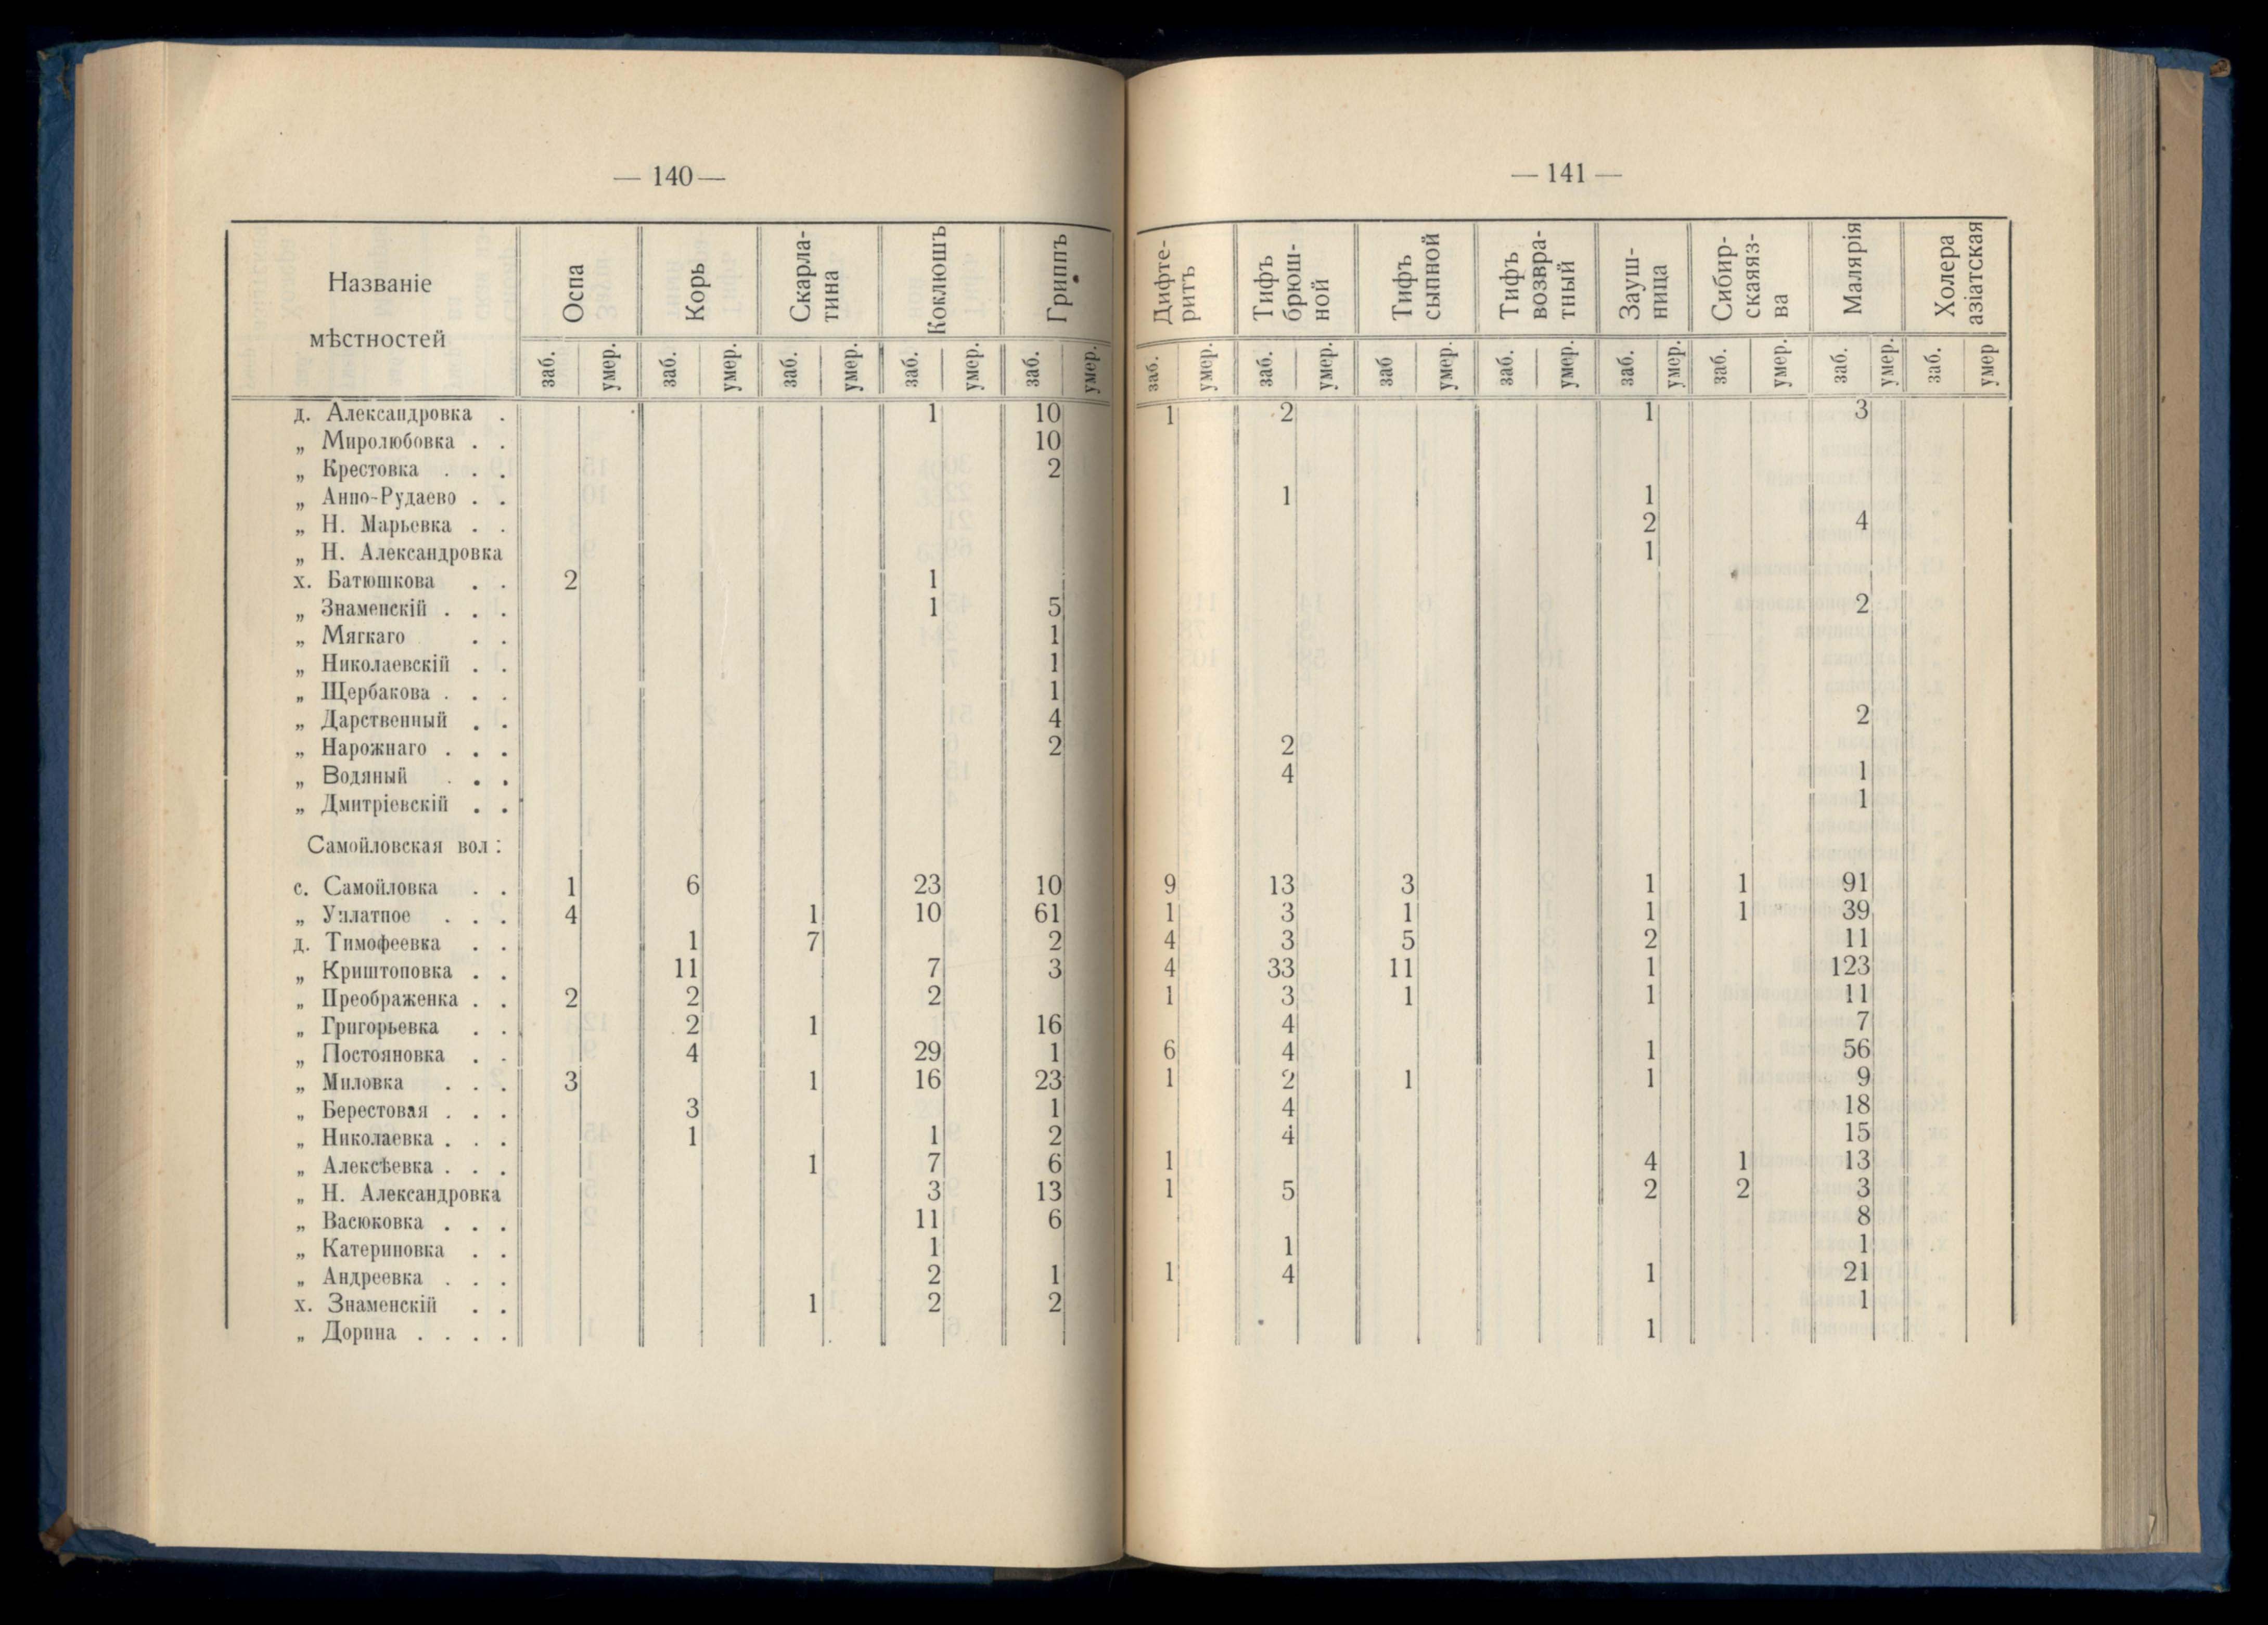 — 140 —
Названіе
мѣстностей
Оспа
Корь
Скарла-
тина
Коклюшъ
Гриппъ
заб. умер. заб. умер. заб. умер. заб. умер. заб. умер.
д. Александровка . 1 10
„ Миролюбовка . . 10
„ Крестовка . . . 2
„ Анно-Рудаево . .
„ Н. Марьевка . .
„ Н. Александровка
х. Батюшкова . . 2 1
„ Знаменскій . . . 1 5
„ Мягкаго . . 1
„ Николаевскій . . 1
„ Щербакова . . . 1
„ Дарственный . . 4
„ Нарожнаго . . . 2
„ Водяный . . .
„ Дмитріевскій . .
Самойловская вол :
с. Самойловка . . 1 6 23 10
„ Уплатное . . . 4 1 10 61
д. Тимофеевка . . 1 7 2
„ Криштоповка . . 11 7 3
„ Преображенка . . 2 2 2
„ Григорьевка . . 2 1 16
„ Постояновка . . 4 29 1
„ Миловка . . . 3 1 16 23
„ Берестовая . . . 3 1
„ Николаевка . . . 1 1 2
„ Алексѣевка . . . 1 7 6
„ Н. Александровка 3 13
„ Васюковка . . . 11 6
„ Катериновка . . 1
„ Андреевка . . . 2 1
х. Знаменскій . . 1 2 2
„ Дорина . . . .
— 141 —
Дифте-
ритъ
Тифъ
брюш-
ной
Тифъ
сыпной
Тифъ
возвра-
тный
Зауш-
ница
Сибир-
скаяяз-
ва
Малярія
Холера
азіатская
заб. умер. заб. умер. заб умер. заб. умер. заб. умер. заб. умер. заб. умер. заб. умер
1 2 1 3
1 1
2 4
1
2
2
2
4 1
1
9 13 3 1 1 91
1 3 1 1 1 39
4 3 5 2 11
4 33 11 1 123
1 3 1 1 11
4 7
6 4 1 56
1 2 1 1 9
4 18
4 15
1 4 1 13
1 5 2 2 3
8
1 1
1 4 1 21
1
1